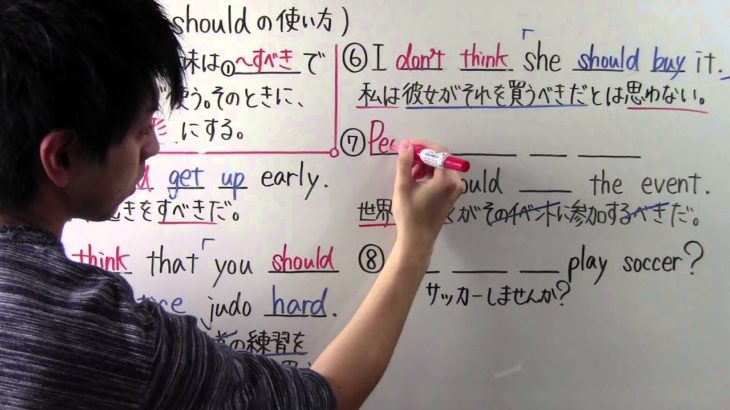 shouldの使い方)
味は①〜すべきで
使う。そのときに、
にする。
get up early.
きをすべきだ。
think that「you should
judo hard.
の練習を
⑥ I don't think「she should buy it.
私は彼女がそれを買うべきだとは思わない。
⑦ Peo
ould ___ the event.
世界 くがそのイベントに参加するべきだ。
⑧ ___ ___ play soccer?
サッカーしませんか?